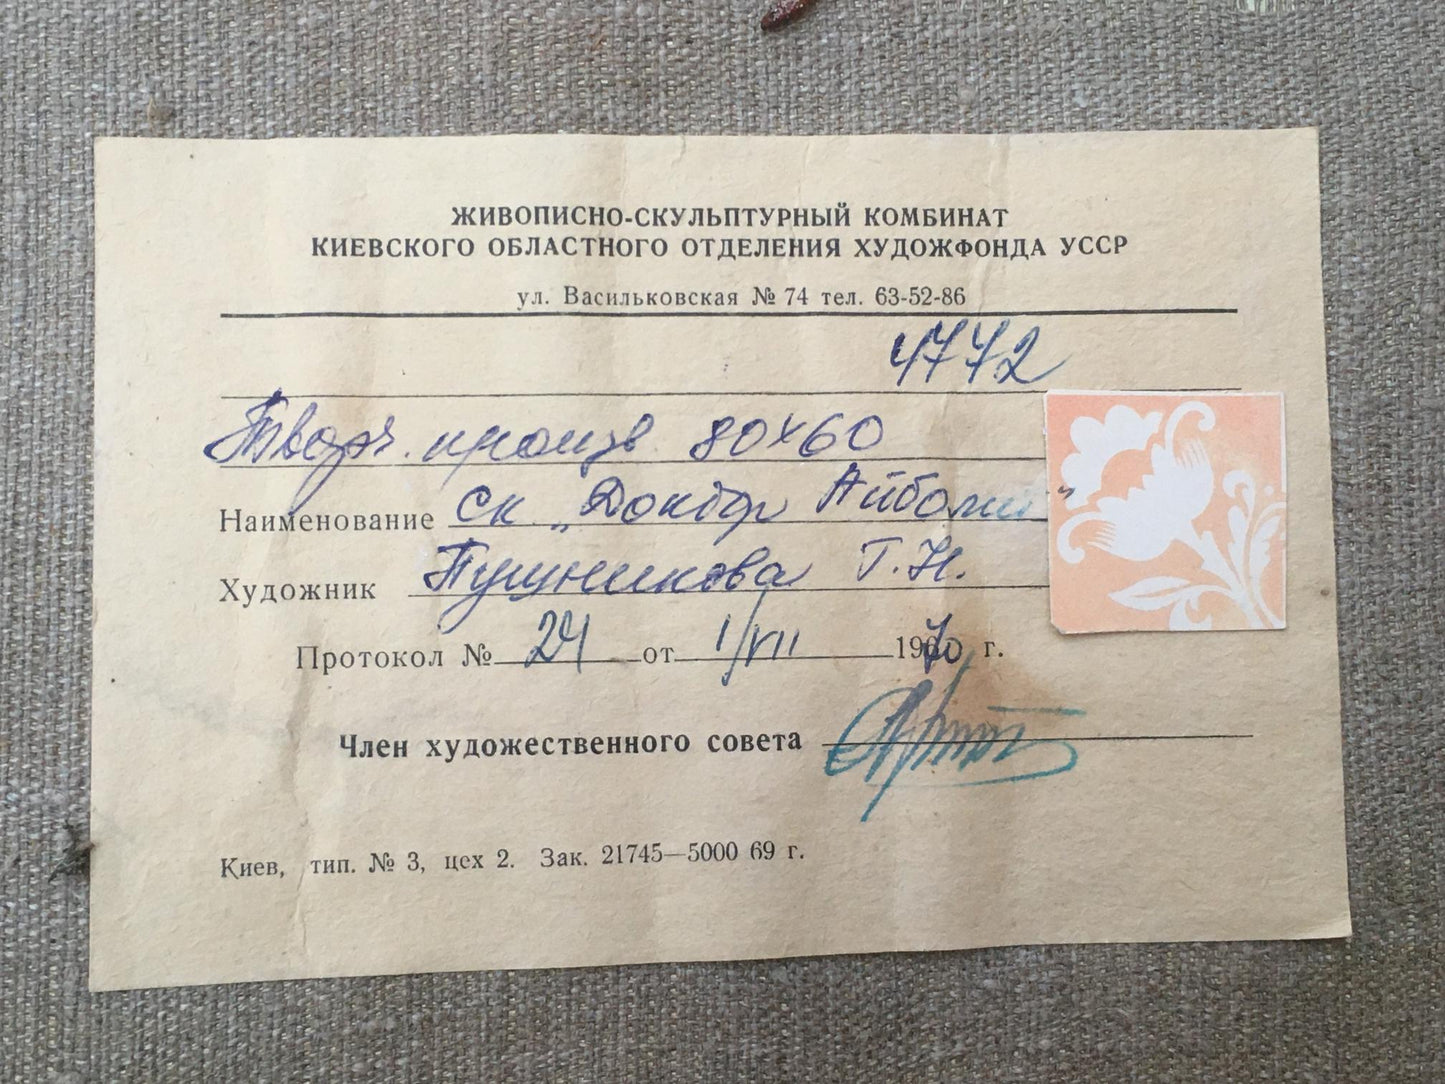 ЖИВОПИСНО-СКУЛЬПТУРНЫЙ КОМБИНАТ
КИЕВСКОГО ОБЛАСТНОГО ОТДЕЛЕНИЯ ХУДОЖФОНДА УССР
ул. Васильковская № 74 тел. 63-52-86
4772
Творч. произв 80х60
Наименование ск „Доктор Айболит"
Художник Пушникова Г.Н.
Протокол № 24 от 1/VII 1970 г.
Член художественного совета
Киев, тип. № 3, цех 2. Зак. 21745—5000 69 г.